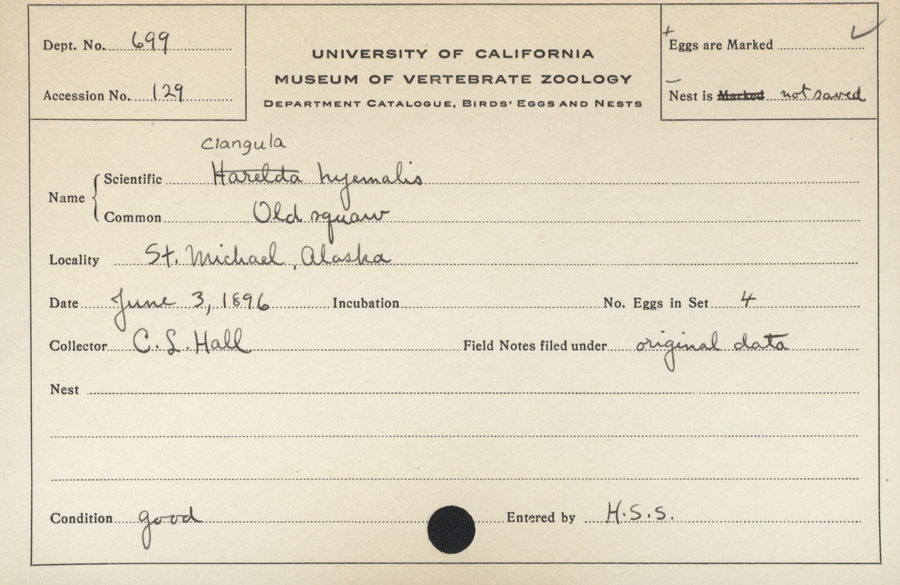 Dept. No. 699
UNIVERSITY OF CALIFORNIA
MUSEUM OF VERTEBRATE ZOOLOGY
DEPARTMENT CATALOGUE, BIRDS' EGGS AND NESTS
+ Eggs are Marked ✓
Accession No. 129
— Nest is Marked not saved
Clangula
Name { Scientific Harelda hyemalis
Common Old squaw
Locality St. Michael, Alaska
Date June 3, 1896 Incubation No. Eggs in Set 4
Collector C. L. Hall Field Notes filed under original data
Nest
Condition good Entered by H.S.S.